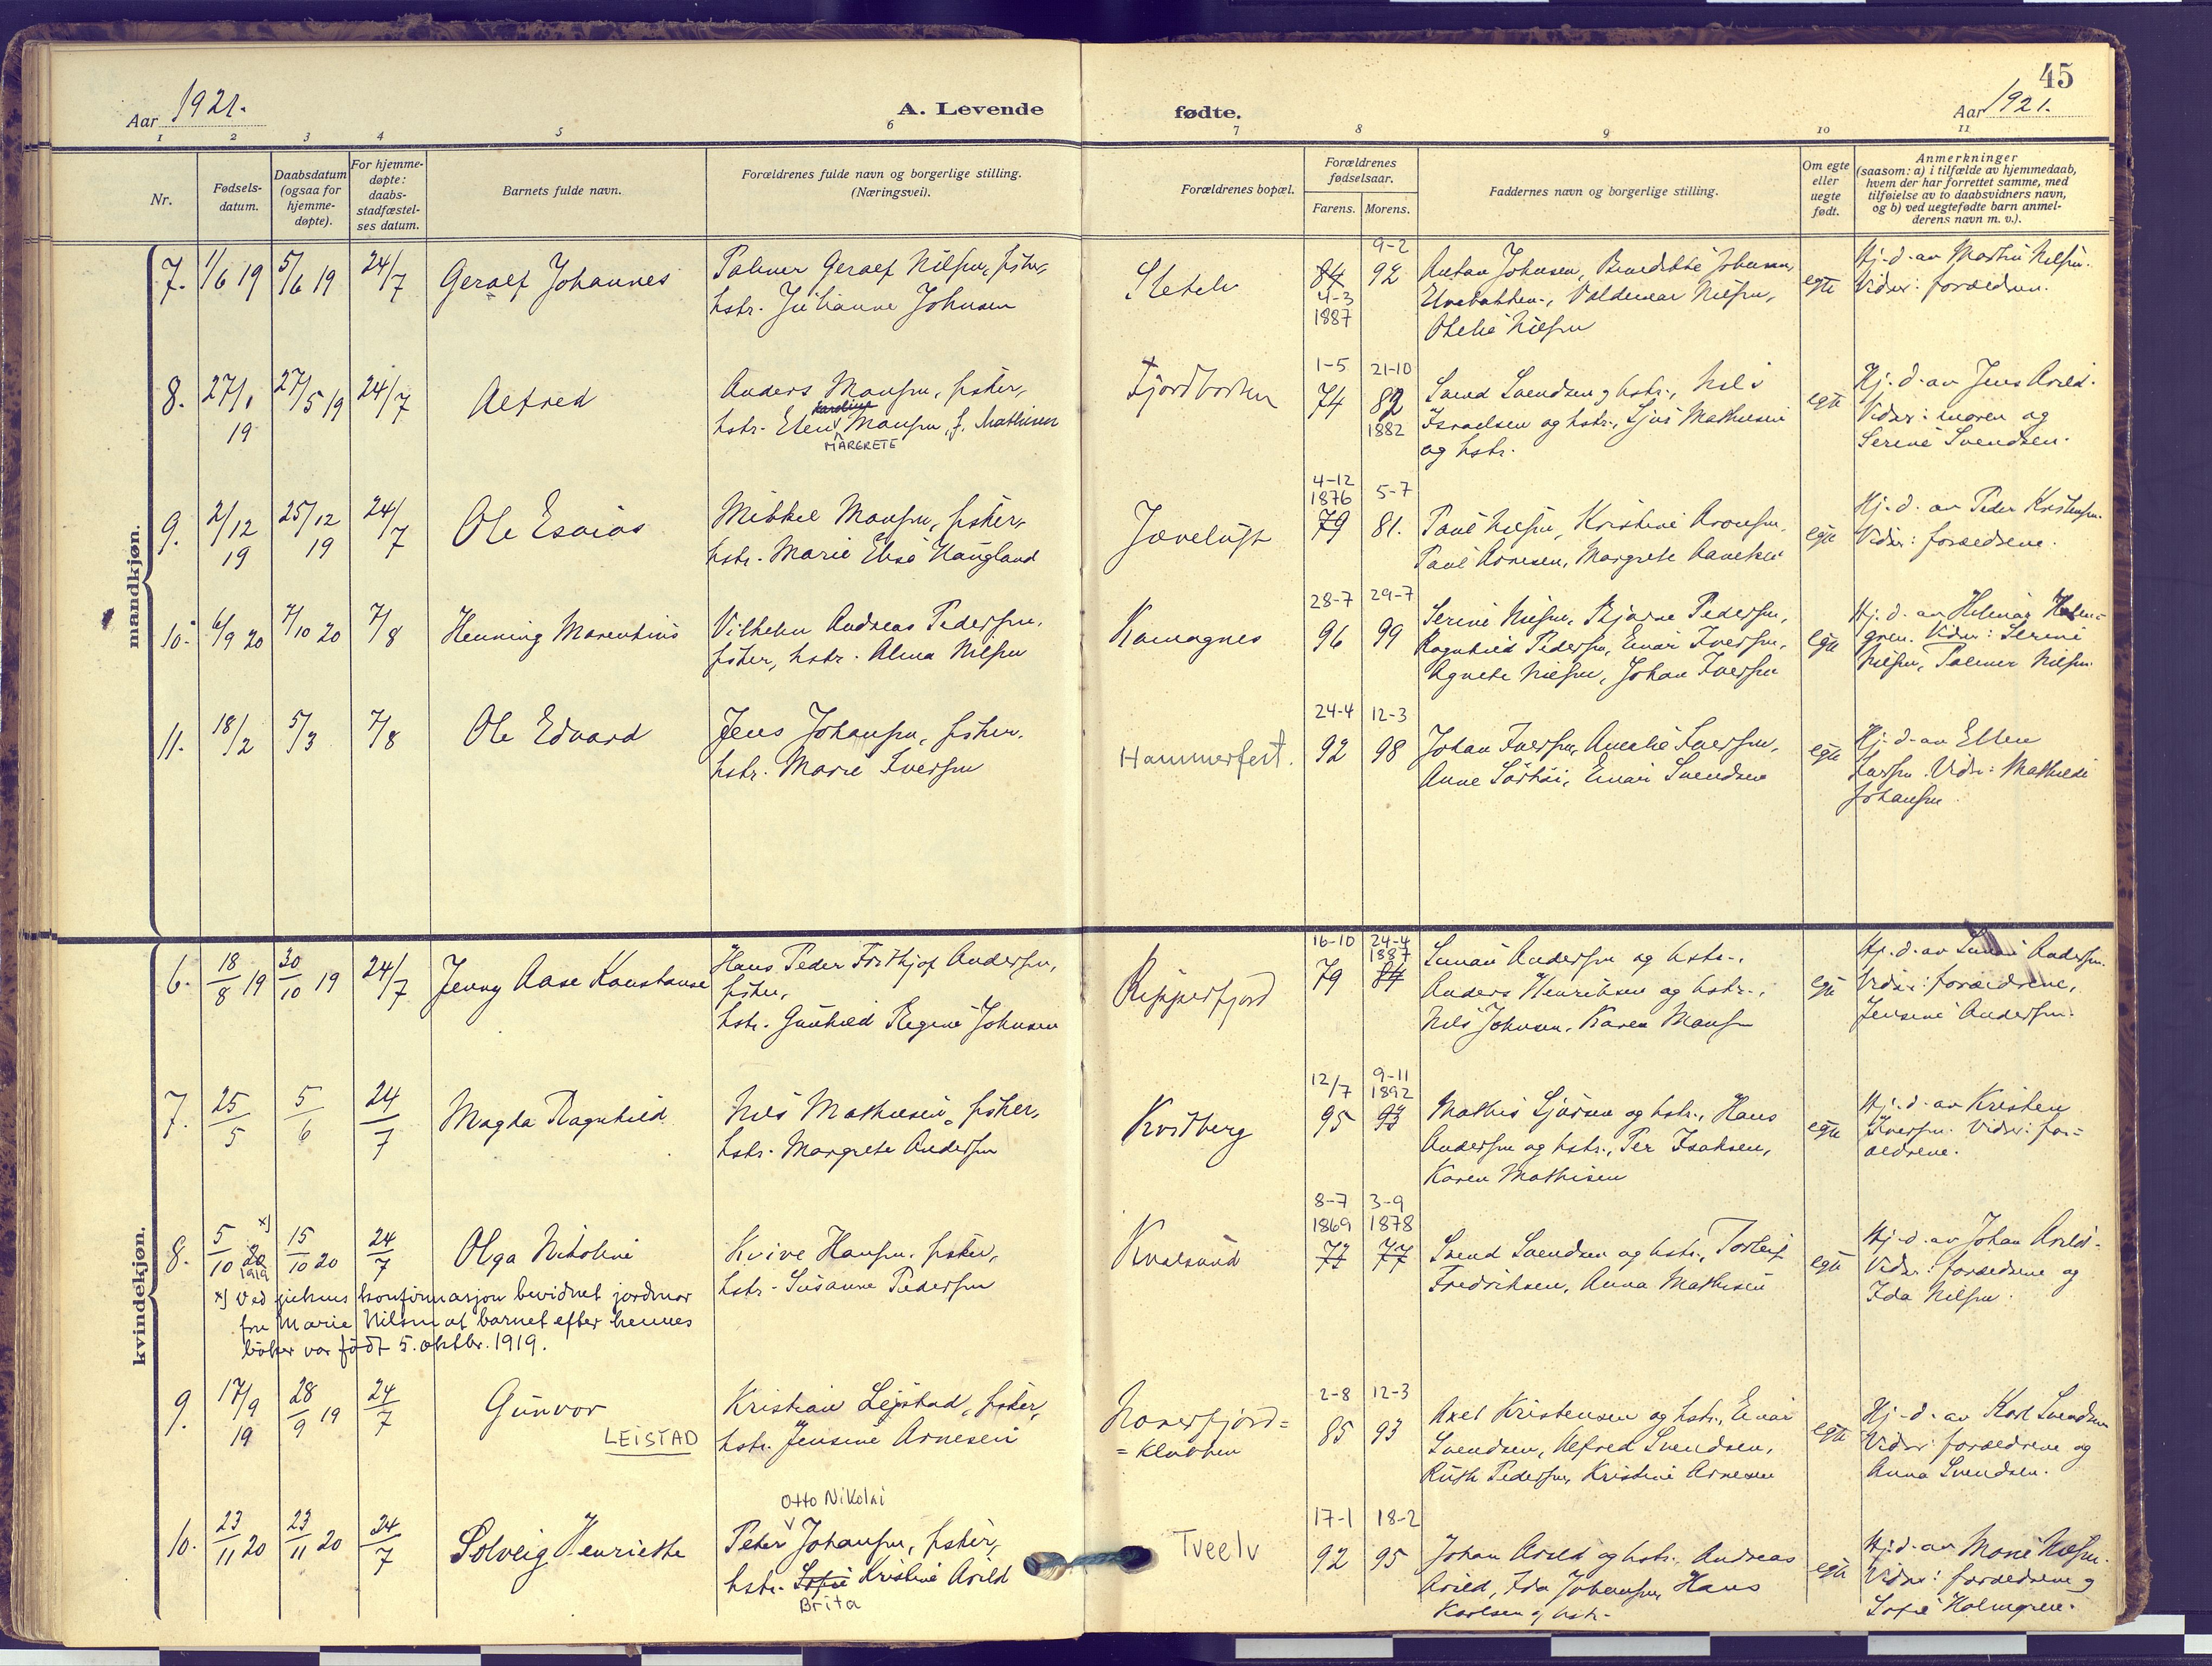 45
Aar 1921.
A. Levende fødte.
Aar 1921.
1 2 3 4 5 6 7 8 9 10 11
Nr.
Fødsels-
datum.
Daabsdatum
(ogsaa for
hjemme-
døpte).
For hjemme-
døpte:
daabs-
stadfæstel-
ses datum.
Barnets fulde navn.
Forældrenes fulde navn og borgerlige stilling.
(Næringsvei).
Forældrenes bopæl.
Forældrenes
fødselsaar.
Farens. Morens.
Faddernes navn og borgerlige stilling.
Om egte
eller
uegte
født.
Anmerkninger
(saasom: a) i tilfælde av hjemmedaab,
hvem der har forrettet samme, med
tilføielse av to daabsvidners navn,
og b) ved uegtefødte barn anmel-
derens navn m. v.).
mandkjøn.
7. 1/6 19 5/6 19 24/7 Geralf Johannes
Palmer Geralf Nilsen, fisker,
hstr. Julianne Johnsen
84 4-3 1887
9-2 92
Anton Johnsen, Benedikte Johnsen,
Valdemar Nilsen,
Otelie Nilsen
egte
Hj.d. av Martin Nilsen.
Vidner: forældrene.
8. 27/1 19 27/5 19 24/7 Alfred
Anders Monsen, fisker,
hstr. Elen Karoline Monsen, f. Mathisen
MARGRETE
Fjordbotten
1-5 74
21-10 82 1882
Svend Svendsen og hstr., Nils
Israelsen og hstr., Mathisen
og hstr.
egte
Hj. d. av Jens Arild.
Vidner: moren og
Serine Svendsen.
9. 2/12 19 25/12 19 24/7 Ole Esaias
Mikkel Monsen, fisker,
hstr. Marie Elise Haugland
4-12 1876 79
5-7 81.
Paul Nilsen, Kristine Aronsen,
Paul Arnesen, Margrete
egte
Hj. d. av Peder Kristensen.
Vidner: forældrene.
10. 6/9 20 7/10 20 7/8 Henning Marentius
Vilhelm Andreas Pedersen,
fisker, hstr. Alma Nilsen
Kamagnes
28-7 96
29-7 99
Serine Nilsen, Bjarne Pedersen,
Ragnhild Pedersen, Einar Iversen,
Agnete Nilsen, Johan Iversen
egte
Hj. d. av Hilmar Holm-
gren. Vidner: Serine
Nilsen, Palmer Nilsen.
11. 18/2 5/3 7/8 Ole Edvard
Jens Johansen, fisker,
hstr. Marie Iversen
Hammerfest.
24-4 92
12-3 98
Johan Iversen, Amalie Iversen,
Anne Einar Svendsen
egte
Hj. d. av Ellen
Vidn: Mathilde
Johansen.
kvindekjøn.
6. 18/8 19 30/10 19 24/7 Jenny Aase Konstanse
Hans Peder Fritkjof Andersen,
fisker,
hstr. Gunhild Regine Johnsen
Ripperfjord
16-10 79
24-4 1887 84
Andersen og hstr.,
Anders Henriksen og hstr.,
Nils Johnsen, Karen Monsen
egte
Hj. d. av Andersen.
Vidner: forældrene,
Jensine Andersen.
7. 25/5 5/6 24/7 Magda Ragnhild
Nils Mathisen, fisker,
hstr. Margrete Andersen
Kvitberg
12/7 95
9-11 1892 93
Mathis og hstr., Hans
Andersen og hstr., Per Isaksen,
Karen Mathisen
egte
Hj. d. av Kristen
Iversen. Vidner: for-
ældrene.
8. 5/10 20 x) 1919 15/10 20 24/7 Olga Nikoline
Kvive Hansen, fisker,
hstr. Susanne Pedersen
Kvalsund
8-7 1869 77
3-9 1878 77
Svend Svendsen og hstr., Torleif
Fredriksen, Anna Mathisen
egte
Hj. d. av Johan Arild.
Vidn: forældrene og
Ida Nilsen.
x) Ved pikens konfirmasjon bevidnet jordmor
fru Marie Nilsen at barnet efter hennes
bøker var født 5. oktbr. 1919.
9. 17/9 19 28/9 19 24/7 Gunvor
LEISTAD
Kristian Leistad, fisker,
hstr. Jensine Arnesen
=klubben
2-8 85
12-3 93
Axel Kristensen og hstr., Einar
Svendsen, Alfred Svendsen,
Ruth Pedersen, Kristine Arnesen
egte
Hj. d. av Karl Svendsen
Vidner: forældrene og
Anna Svendsen.
10. 23/11 20 23/11 20 24/7 Solveig Henriette
Otto Nikolai
Peter Johansen, fisker,
hstr. Sofie Kristine Arild
Brita
Tveelv
17-1 92
18-2 95
Johan Arild og hstr., Andreas
Arild, Ida Johansen, Hans
Karlsen og hstr.
egte
Hj. d. av Marie
Vidner: forældrene og
Sofie Holmgren.